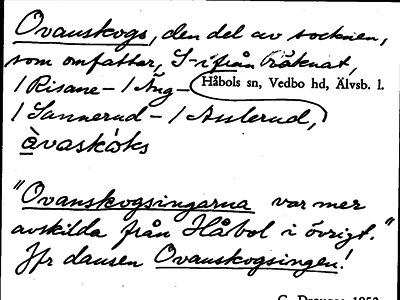 Ovanskogs, den del av socknen,
som omfattar, S-ifrån räknat,
/ Risane - / Äng -
Håbols sn, Vedbo hd, Älvsb. l.
/ Sannerud - / Asslerud,
àvaskóks
"Ovanskogsingarna var mer
avskilda från Håbol i övrigt."
Jfr dansen Ovanskogsingen!